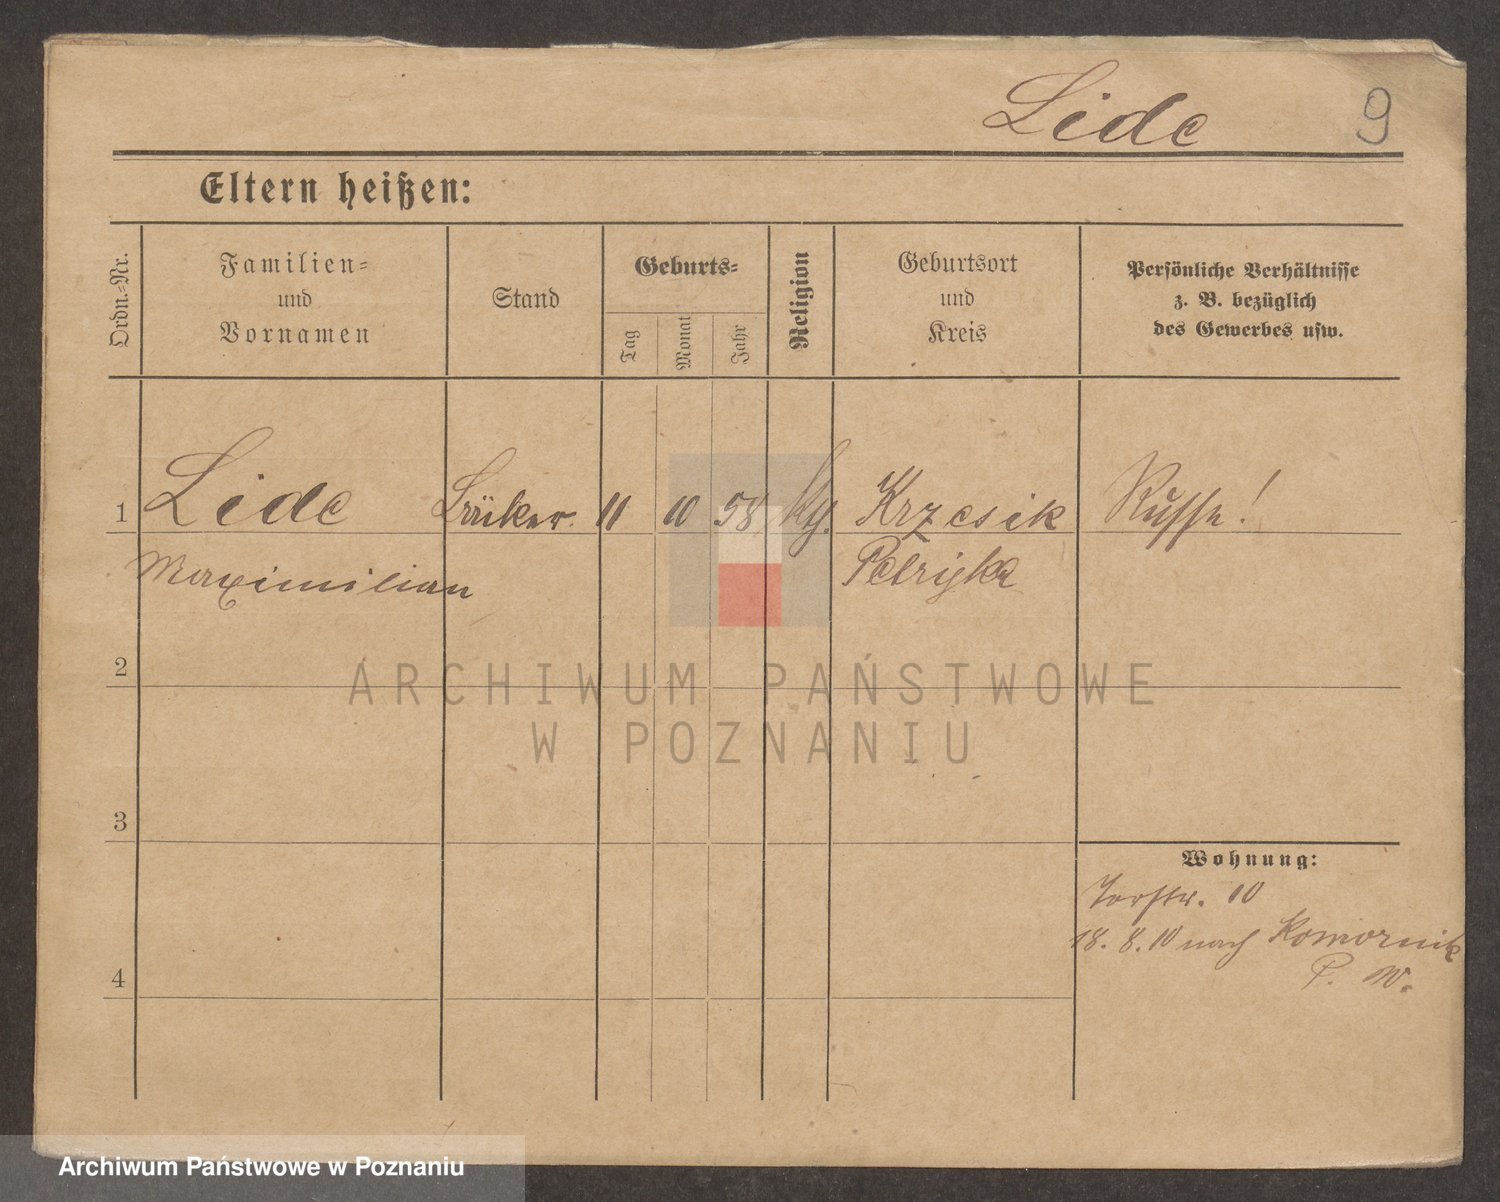 Lide 9
Eltern heißen:
Ordn.-Nr.
Familien-
und
Vornamen
Stand
Geburts-
Tag
Monat
Jahr
Religion
Geburtsort
und
Kreis
Persönliche Verhältnisse
z. B. bezüglich
des Gewerbes usw.
1 Lide 11 10 58 Krzesik Russe!
Maximilian
2
ARCHIWUM PAŃSTWOWE
W POZNANIU
3
Wohnung:
Torstr. 10
18. 8. 10 nach Komornik
4
P. W.
Archiwum Państwowe w Poznaniu